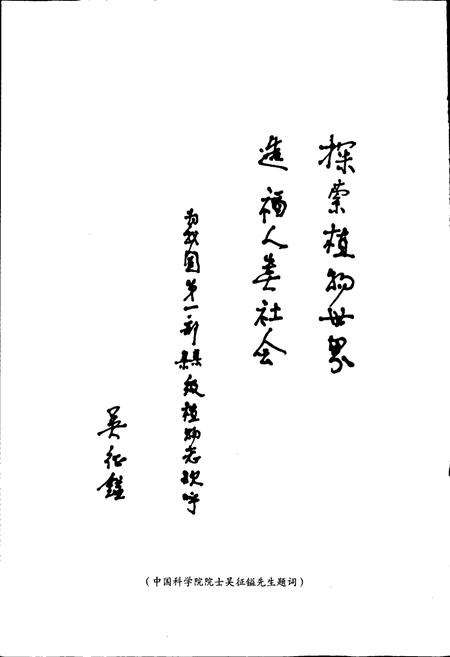 探索植物世界
造福人类社会
为我国第一部县级植物志欢呼
吴征镒
（中国科学院院士吴征镒先生题词）